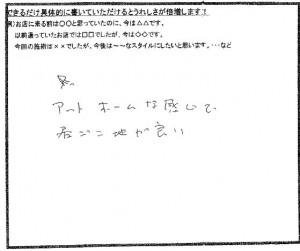 できるだけ具体的に書いていただけるとうれしさが倍増します！
例)お店に来る前は〇〇と思っていたのに、今は△△です。
以前通っていたお店では□□でしたが、今は◇◇です。
今回の施術は××でしたが、今後は～～なスタイルにしたいと思います。…など
アットホームな感じで
居ごこ地が良い